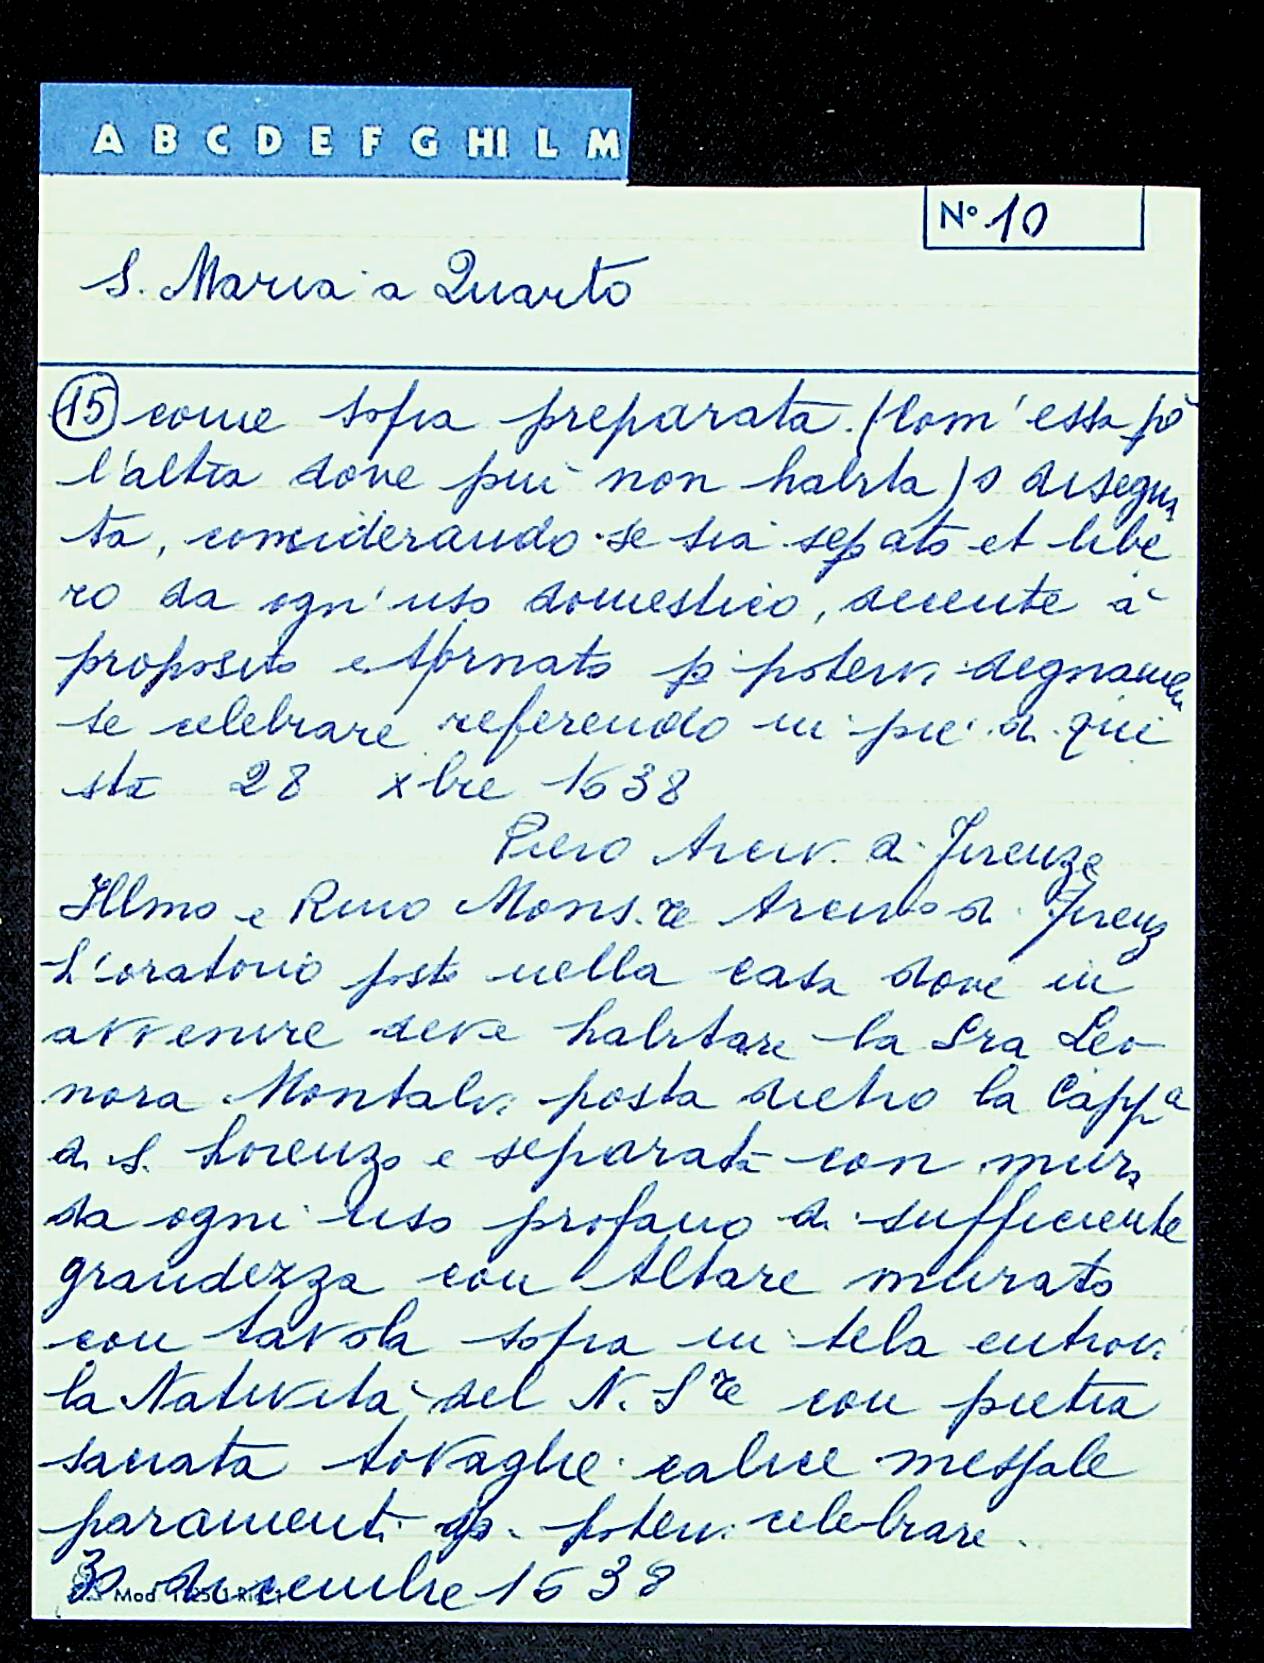 A B C D E F G HI L M
N° 10
S. Maria a Quarto
15 come sopra preparata (com' essa po
l'altra dove più non habita) o disegna
ta, considerando se sia sepato et libe
ro da ogn' uso domestico, decente à
proposito e adornato p potervi degnamen
te celebrare referendo in piè di que
sta 28 xbre 1638
Piero Arciv. di Firenze
Illmo e Rmo Mons.re Arcivo di Firenz
L'oratorio posto nella casa dove in
avvenire deve habitare la Sra Leo
nora Montalvi posta dietro la Capp.a
di S. Lorenzo e separata con mura
da ogni uso profano di sufficiente
grandezza con Altare murato
con tavola sopra in tela entrovi
la Natività del N. S.re con pietra
sacrata tovaglie calice messale
paramenti p. potervi celebrare.
30 dicembre 1638
Mod.